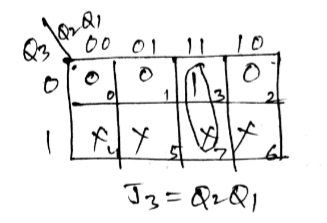 Q2Q1
Q3 00 01 11 10
0 0 0 0 1 1 3 0 2
1 X 4 X 5 X 7 X 6
J3 = Q2Q1